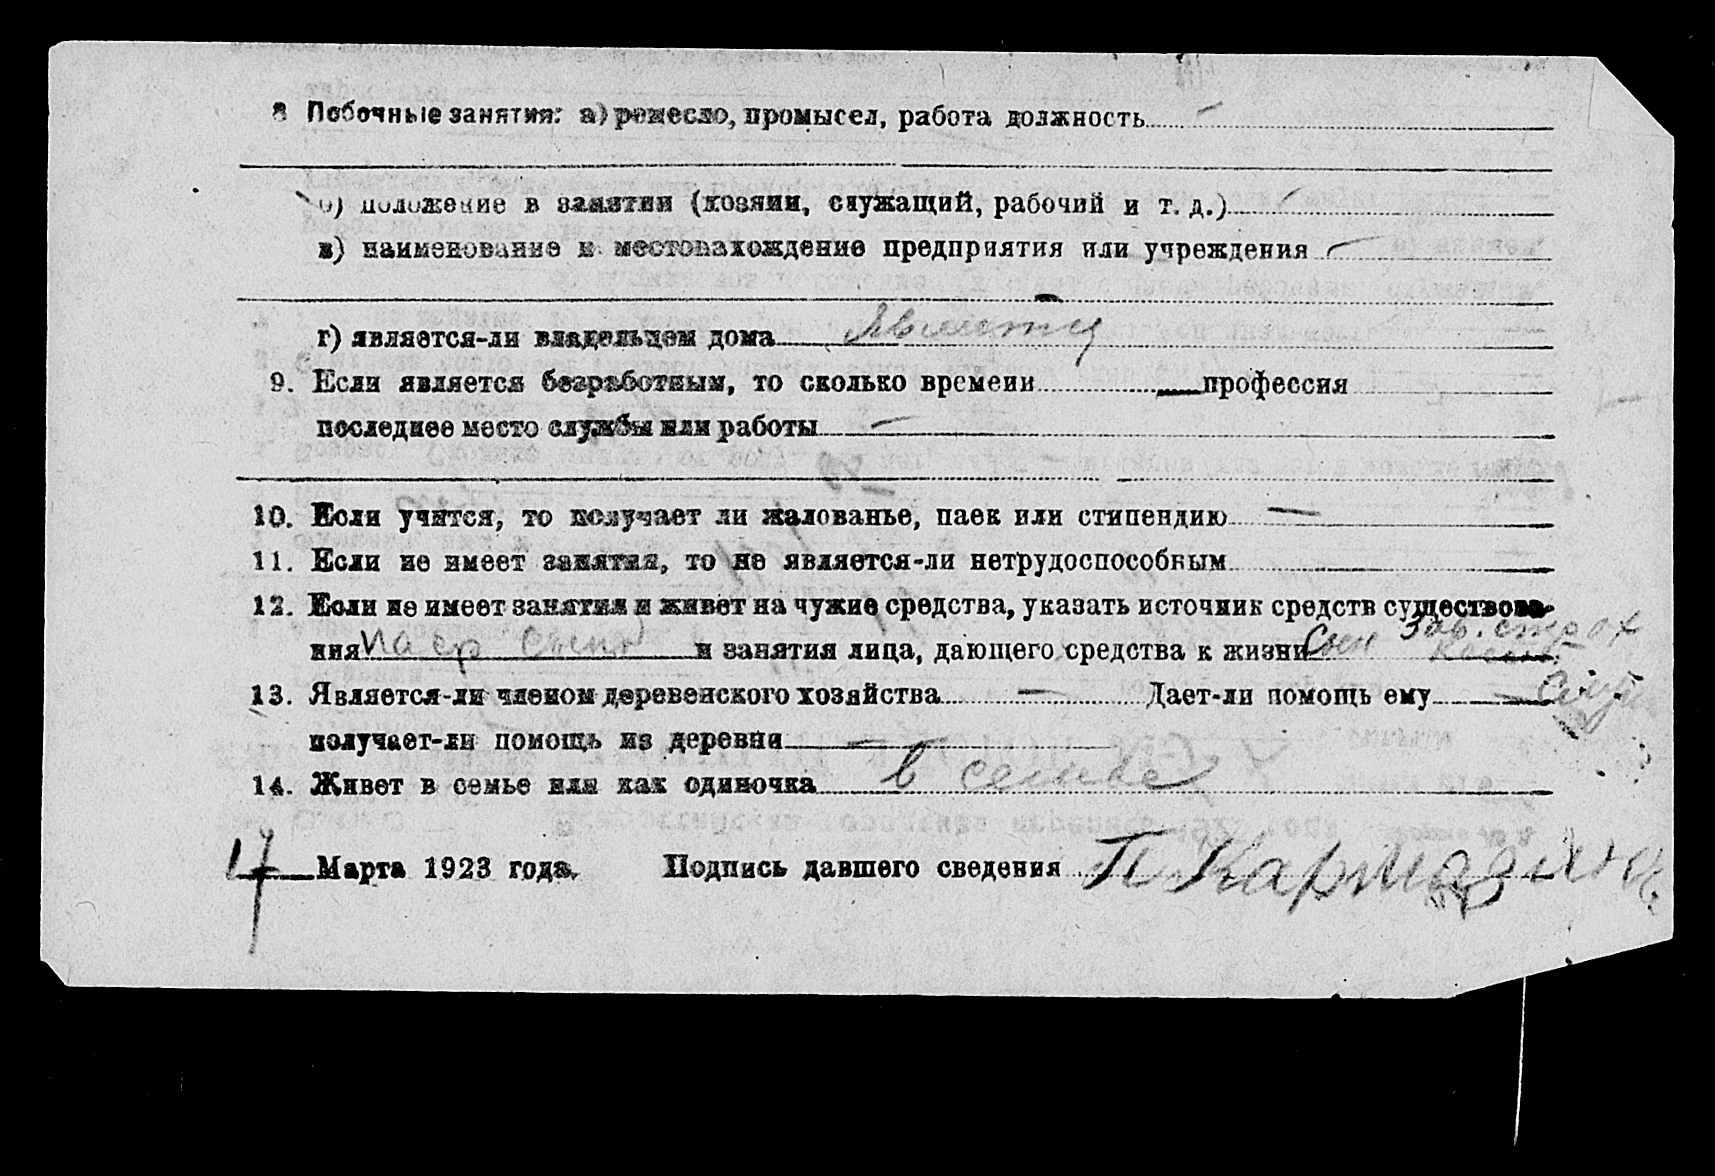 8 Побочные занятия: а) ремесло, промысел, работа должность —
б) положение в занятии (хозяин, служащий, рабочий и т. д.) —
в) наименование и местонахождение предприятия или учреждения —
—
г) является-ли владельцем дома
9. Если является безработным, то сколько времени — профессия
последнее место службы или работы —
10. Если учится, то получает ли жалованье, паек или стипендию —
11. Если не имеет занятия, то не является-ли нетрудоспособным
12. Если не имеет занятия и живет на чужие средства, указать источник средств существова-
ния на ср сына и занятия лица, дающего средства к жизни Сын Зав. страх
13. Является-ли членом деревенского хозяйства — Дает-ли помощь ему —
получает-ли помощь из деревни —
14. Живет в семье или как одиночка в семье
17 Марта 1923 года. Подпись давшего сведения П Кармазина